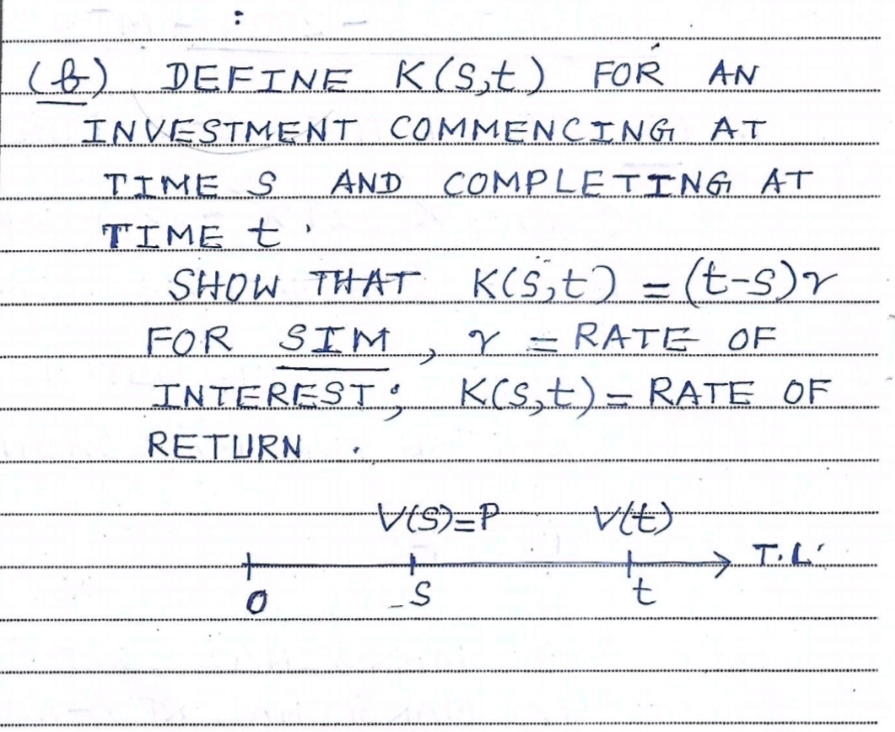 (b) DEFINE K(S,t) FOR AN
INVESTMENT COMMENCING AT
TIME S AND COMPLETING AT
TIME t.
SHOW THAT K(S,t) = (t-S)r
FOR SIM, r = RATE OF
INTEREST; K(S,t) = RATE OF
RETURN.
V(S)=P V(t)
T.L.
0 S t